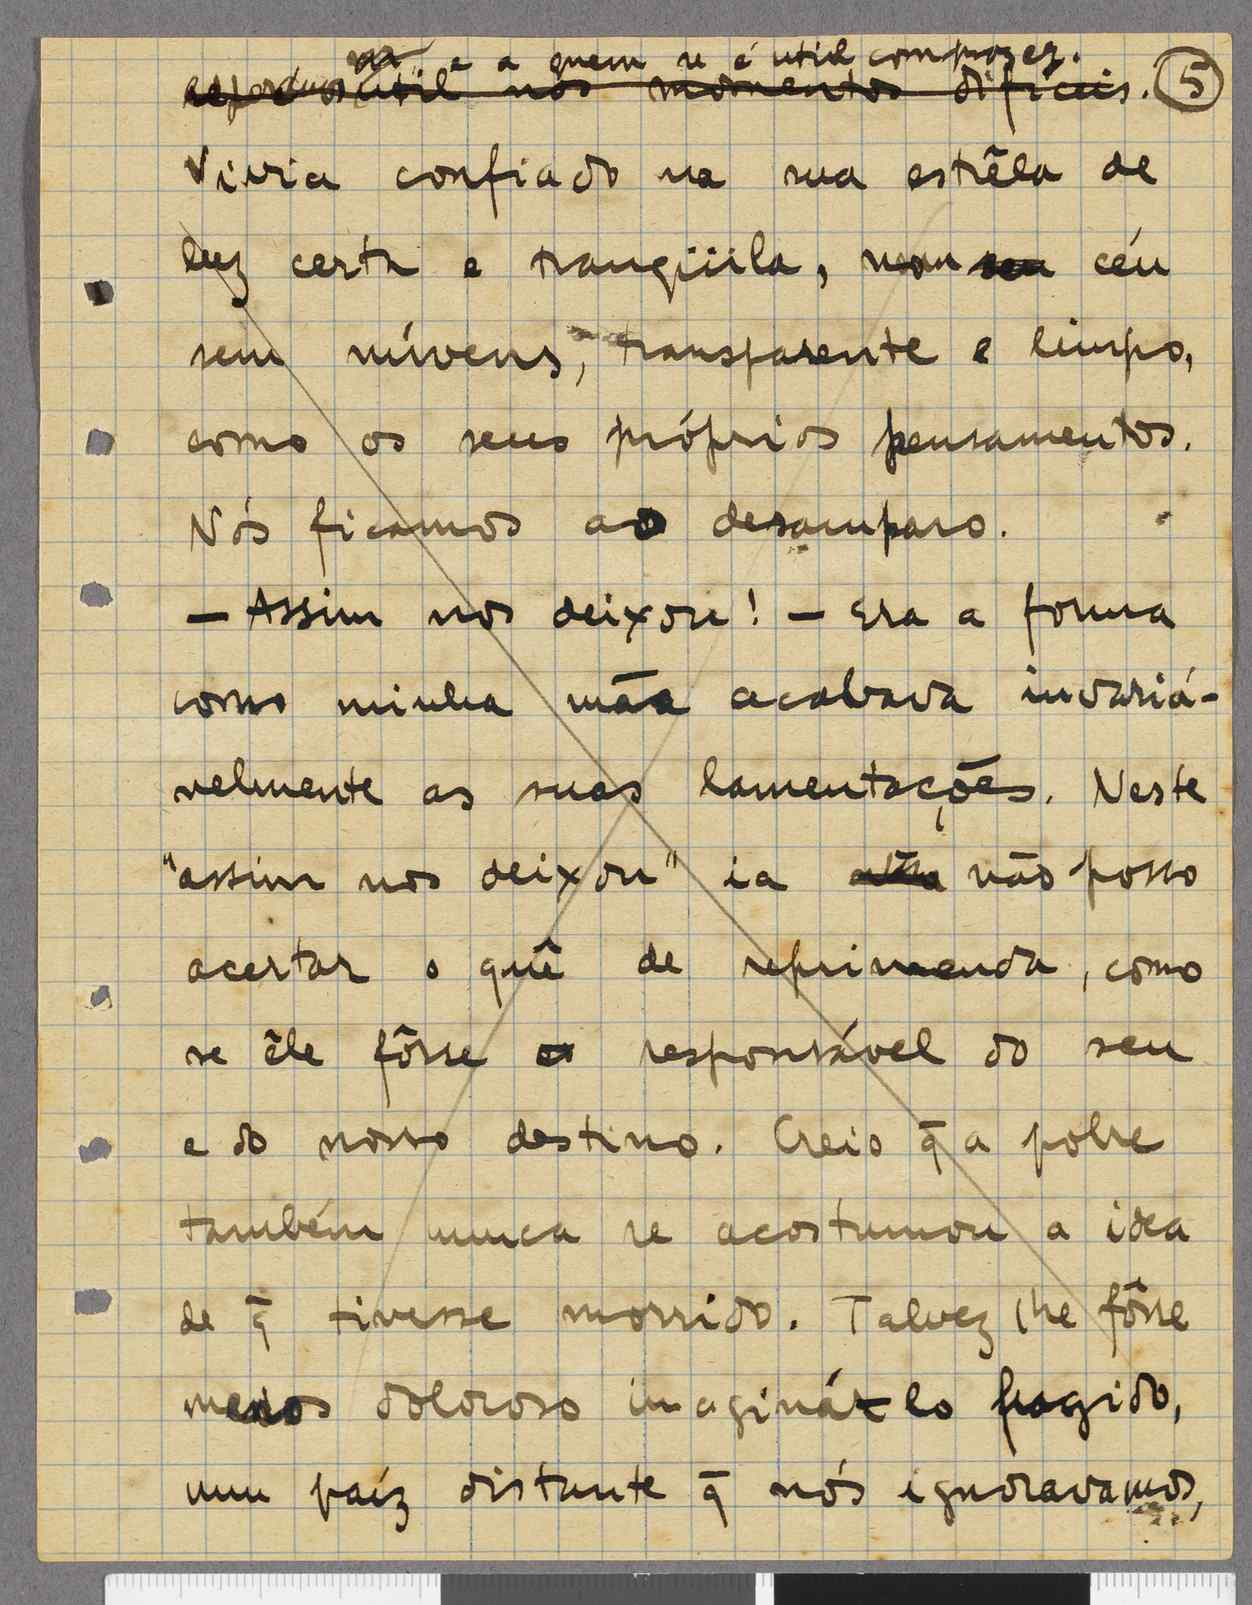 e a quem se é util compraz e.
útil nos momentos dificeis. 5
Vivia confiado na sua estrêla de
luz certa e tranqüila, num seu céu
sem núvens, transparente e limpo,
como os seus próprios pensamentos.
Nós ficamos ao desamparo.
— Assim nos deixou! — Era a forma
como minha mãe acabava invariá-
velmente as suas lamentações. Neste
"assim nos deixou" ia não posso
acertar o quê de reprimenda, como
se êle fôsse responsável do seu
e do nosso destino. Creio q̄ a pobre
também nunca se acostumou a idea
de q̄ tivesse morrido. Talvez lhe fôsse
menos doloroso imaginá-lo fugido,
num paíz distante q̄ nós ignoravamos,